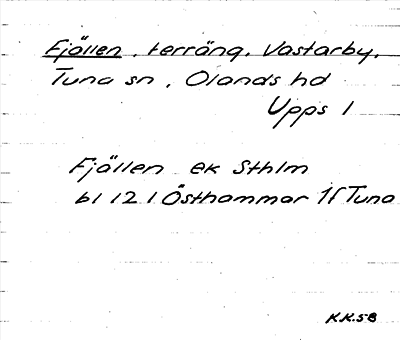 Fjällen, terräng, Västarby,
Tuna sn, Olands hd
Upps l
Fjällen ek Sthlm
bl 12 1 Östhammar 1f Tuna
K.K.58